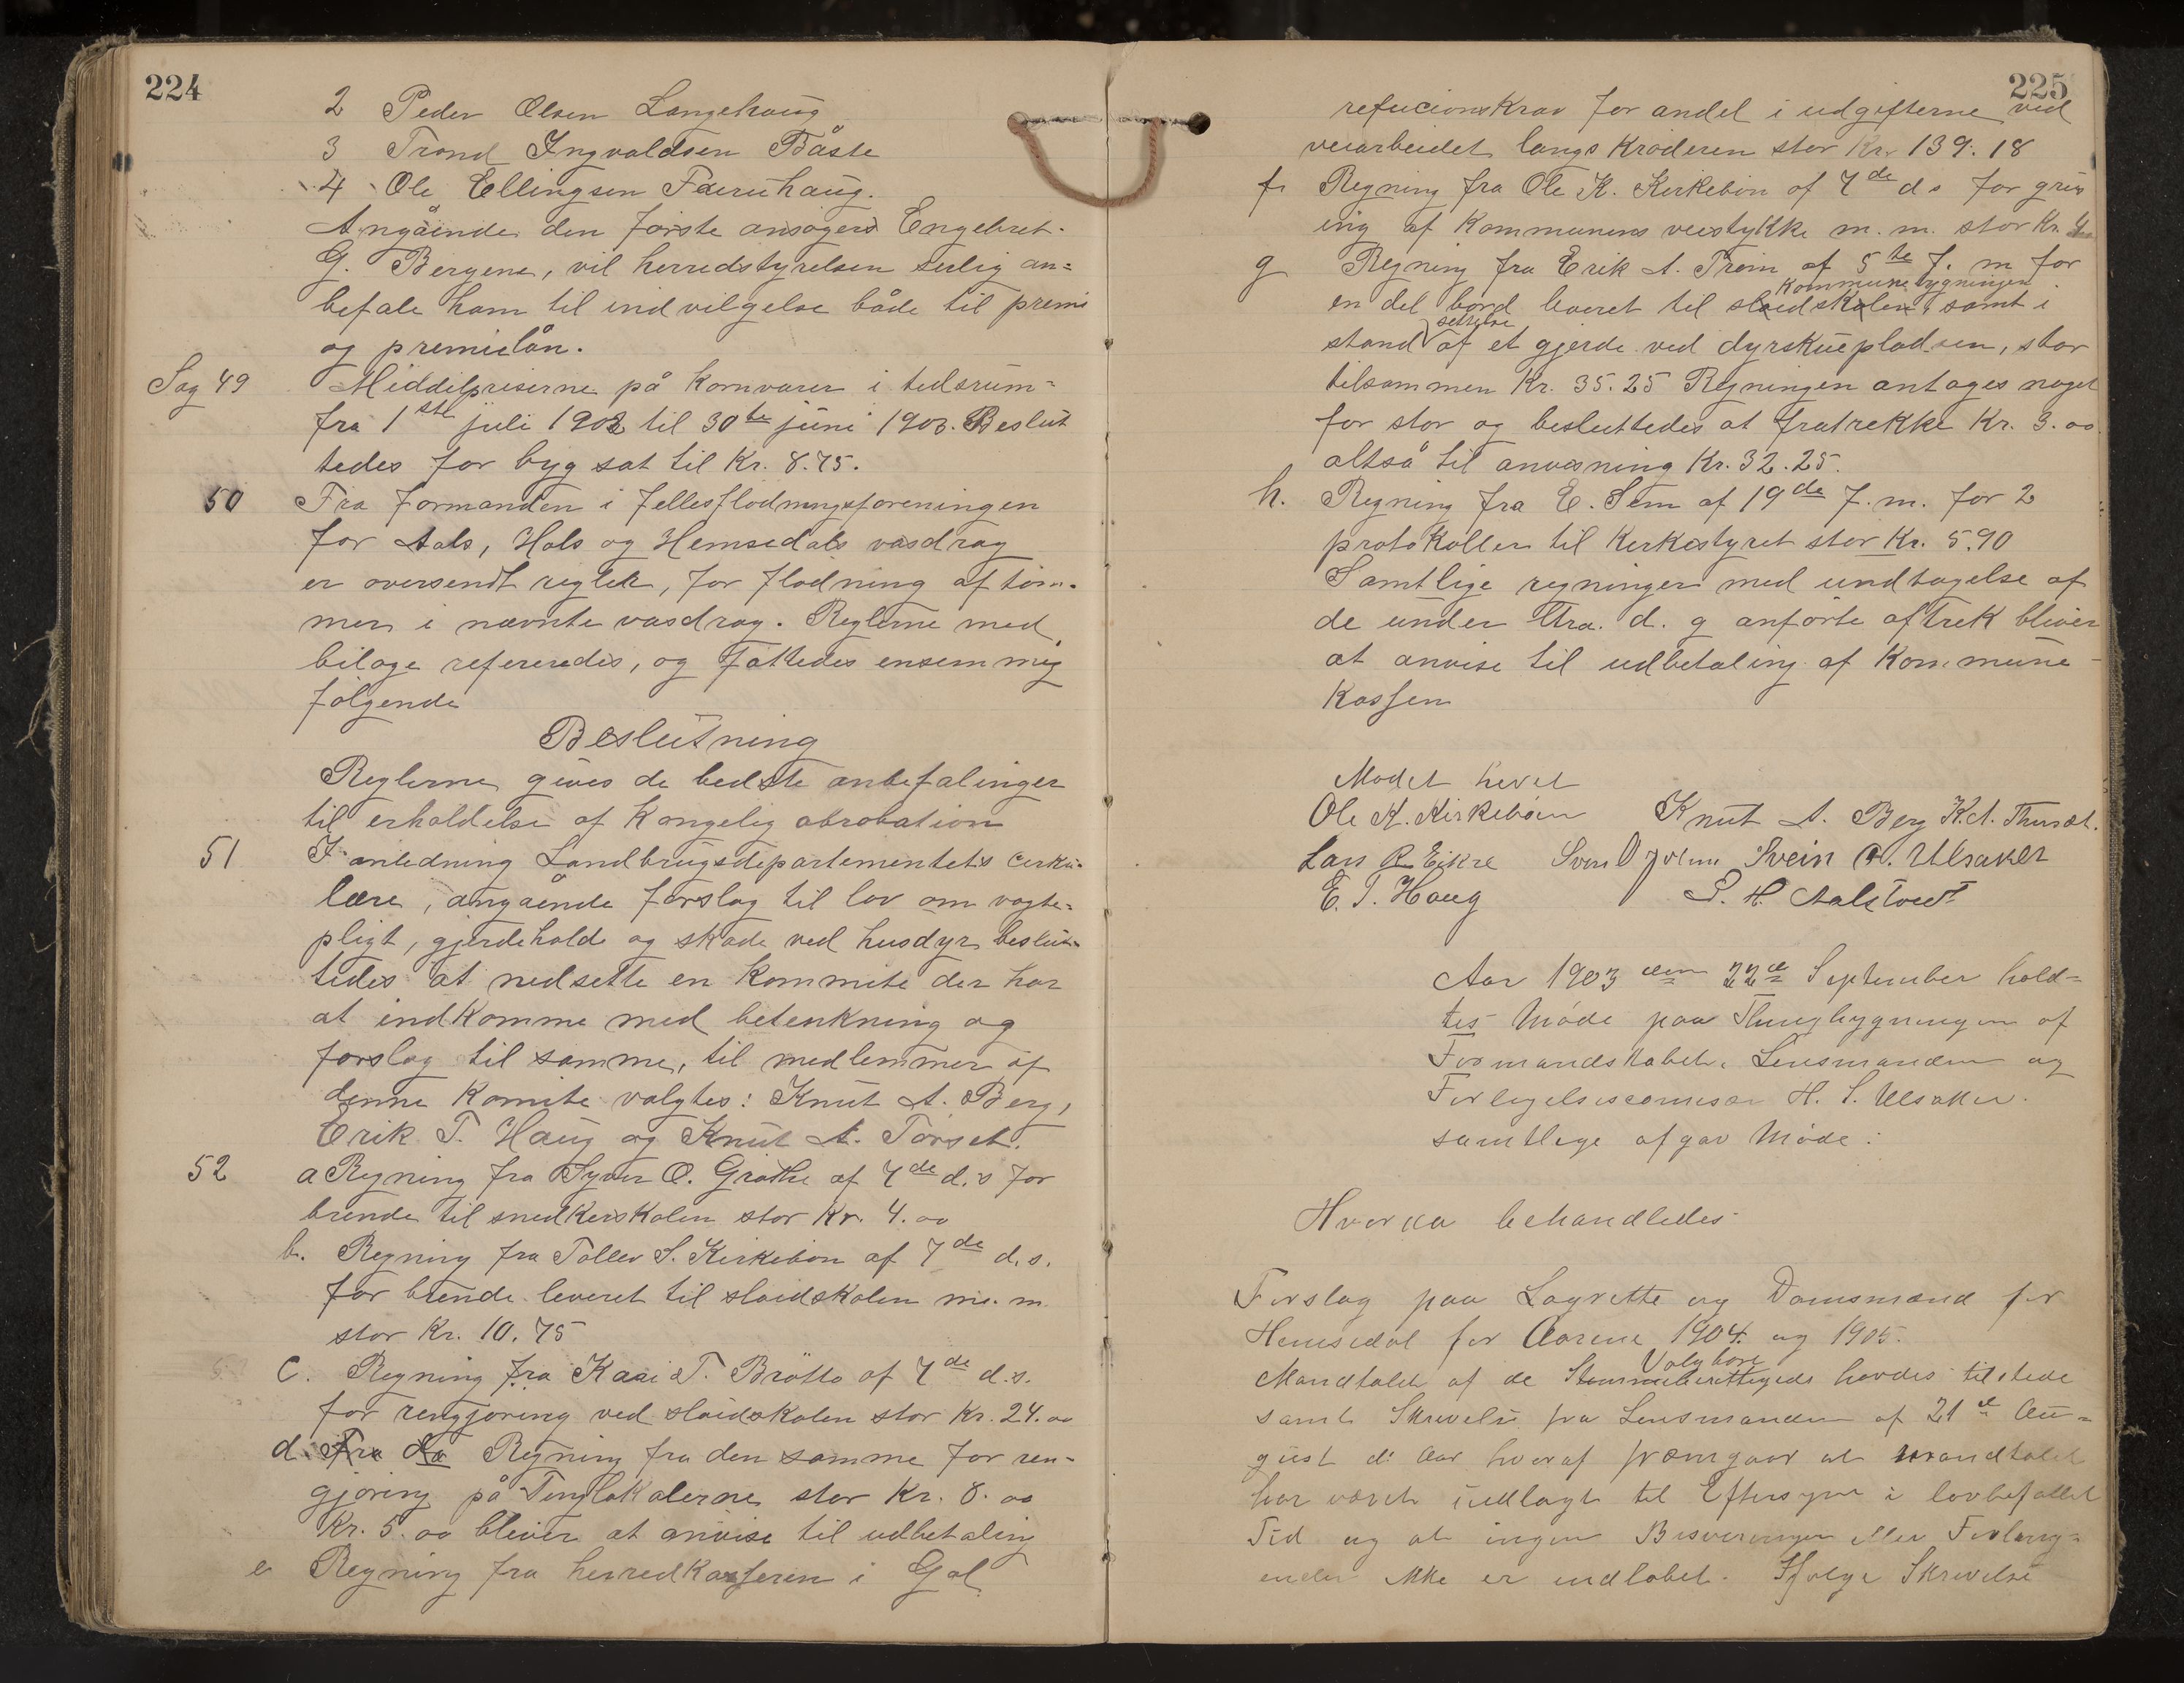 224
2 Peder Olsen Langehaug
3 Trond Ingvaldsen Båste
4 Ole Ellingsen Færuhaug.
Angåënde den første ansøgers Engebret
G. Bergene, vil herredstyrelsen særlig an=
befale ham til indvilgelse både til premi
og premielån.
Sag 49 Middelpriserne på kornvarer i tidsrum=
fra 1ste juli 1902 til 30te juni 1903. Beslut
tedes for byg sat til Kr. 8.75.
50 Fra formanden i fellesflødningsforeningen
for Aals, Hols og Hemsedals vasdrag
er oversendt regler, for flødning af tøm-
mer i nævnte vasdrag. Reglerne med
bilage refereredes, og fattedes ensemmig
følgende
Beslutning
Reglerne gives de bedste anbefalinger
til erholdelse af kongelig abrobation
51 I anledning Landbrugsdepartementets cirku-
lære, angående forslag til lov om vogte=
pligt, gjerdehold og skade ved husdyr beslut-
tedes at nedsette en kommite der har
at indkomme med betenkning og
forslag til samme, til medlemmer af
denne komite valgtes: Knut A. Berg,
Erik T. Haug og Knut A. Torset.
52 a Regning fra Syver O. Grøthe af 7de d.s for
brende til snedkerskolen stor Kr. 4.00
b. Regning fra Tollev S. Kirkebøn af 7de d.s.
for brende leveret til sløidskolen m. m
stor Kr. 10.75
C. Regning fra Kari T. Brøtto af 7de d.s.
for rengjøring ved sløidskolen stor Kr. 24.00
d. Fra da Regning fra den samme for ren-
gjøring på Tinglokalerne stor Kr. 8.00
Kr. 5.00 bliver at anvise til udbetaling
e Regning fra herredkasseren i Gol
225
refucionskrav for andel i udgifterne ved
veiarbeidet langs Krøderen stor Kr. 139.18
f. Regning fra Ole K. Kirkebøn af 7de ds for grus
ing af kommunens veistykke m.m. stor Kr. 4
g Regning fra Erik A. Trøim af 5te f. m for
kommunebygningen
en del bord leveret til sløidskolen, samt i
settelse
stand af et gjerde ved dyrskuepladsen, stor
tilsammen Kr. 35.25 Regningen antages noget
for stor og besluttedes at fratrekke Kr. 3.00
altså til anvisning Kr. 32.25.
h. Regning fra E. Sem af 19de f.m. for 2
protokoller til kirkestyret stor Kr. 5.90
Samtlige regninger med undtagelse af
de under ltra. d. g anførte aftrek bliver
at anvise til udbetaling af Kommune-
kassen
Mødet hevet
Ole K. Kirkebøen Knut A. Berg K.A. Thorset.
Lars R Eikre Svein O. Ulsaker
E. T. Haug P. H. Aalstveit
Aar 1903 den 22de September hold=
tes Møde paa Thingbygningen af
Formandskabet, Lensmanden og
Forligelsescomisær H. S. Ulsaker.
samtlige afgav Møde:
Hvorda behandledes
Forslag paa Lagrette og Domsmænd for
Hemsedal for Aarene 1904 og 1905.
Valgbare
Mandtalet af de Stemmeberettigede havdes tilstede
samt Skrivelse fra Lensmanden af 21de Au=
gust d. Aar hvoraf fremgaar at mandtalet
har været udlagt til Eftersyn i lovbefallet
Tid og at ingen Besveringer eller Forlang=
ender ikke er indløbet. Ifølge Skrivelse